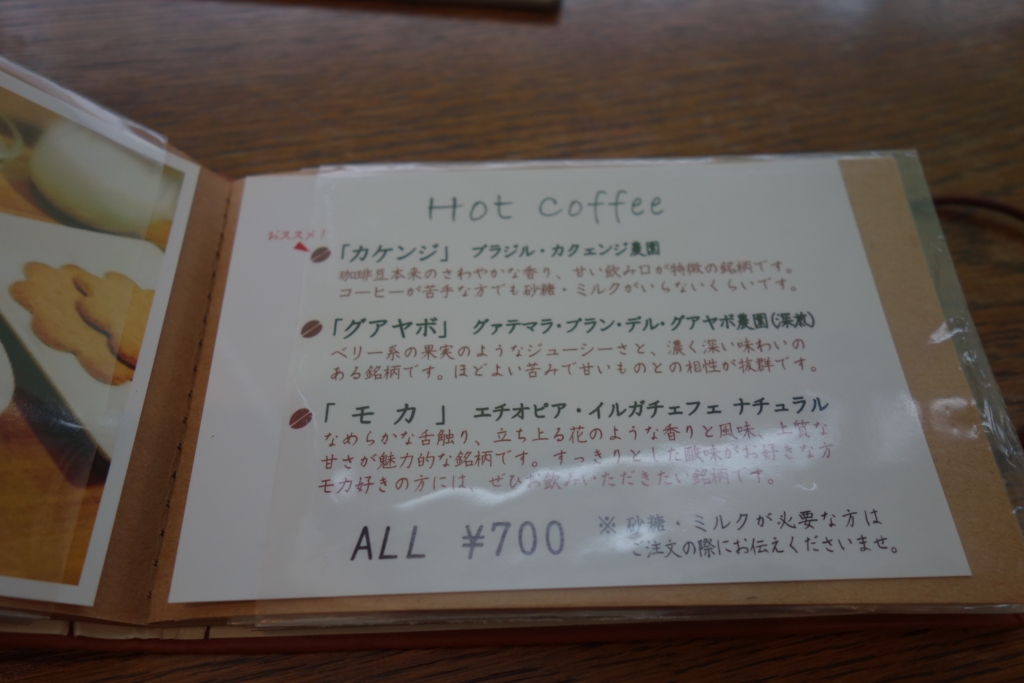 Hot Coffee
おススメ！
「カケンジ」 ブラジル・カクェンジ農園
珈琲豆本来のさわやかな香り、甘い飲み口が特徴の銘柄です。
コーヒーが苦手な方でも砂糖・ミルクがいらないくらいです。
「グアヤボ」 グァテマラ・ブラン・デル・グアヤボ農園(深煎)
ベリー系の果実のようなジューシーさと、濃く深い味わいの
ある銘柄です。ほどよい苦みで甘いものとの相性が抜群です。
「モカ」 エチオピア・イルガチェフェ ナチュラル
なめらかな舌触り、立ち上る花のような香りと風味、上質な
甘さが魅力的な銘柄です。すっきりとした酸味がお好きな方
モカ好きの方には、ぜひお飲みいただきたい銘柄です。
ALL ¥700
※砂糖・ミルクが必要な方は
ご注文の際にお伝えくださいませ。